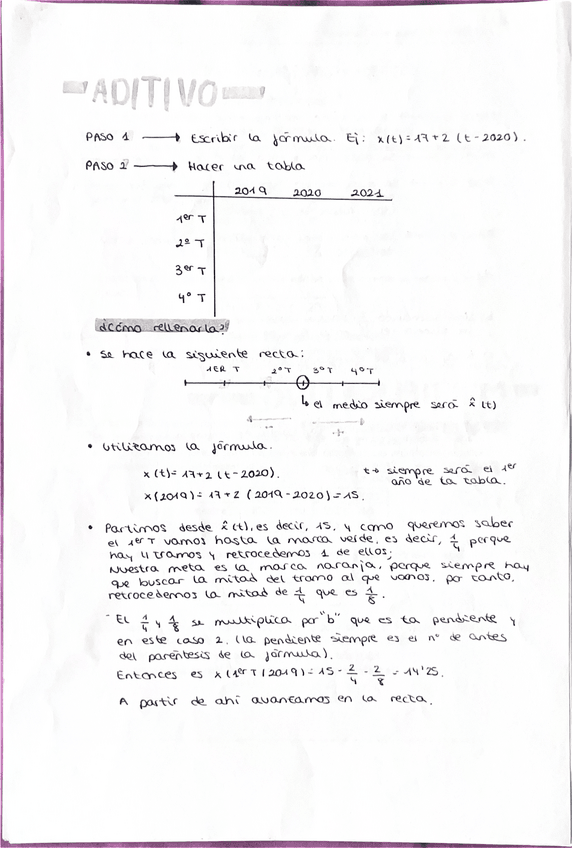 ADITIVO
PASO 1 → Escribir la fórmula. Ej: x(t)=17+2 (t-2020).
PASO 2 → Hacer una tabla
2019 2020 2021
1er T
2º T
3er T
4º T
¿Cómo rellenarla?
• Se hace la siguiente recta:
1ER T 2ºT 3ºT 4ºT
↳ el medio siempre será x̂(t)
← - - + →
• Utilizamos la fórmula.
x(t)=17+2 (t-2020). t→ siempre será el 1er
año de la tabla.
x(2019)=17+2 (2019-2020)=15.
• Partimos desde x̂(t), es decir, 15, y como queremos saber
el 1er T vamos hasta la marca verde, es decir, 1/4 porque
hay 4 tramos y retrocedemos 1 de ellos;
Nuestra meta es la marca naranja, porque siempre hay
que buscar la mitad del tramo al que vamos, por tanto,
retrocedemos la mitad de 1/4 que es 1/8.
- El 1/4 y 1/8 se multiplica por "b" que es la pendiente y
en este caso 2. (la pendiente siempre es el nº de antes
del paréntesis de la fórmula).
Entonces es x(1er T/2019)=15 - 2/4 - 2/8 = 14'25.
A partir de ahí avanzamos en la recta.